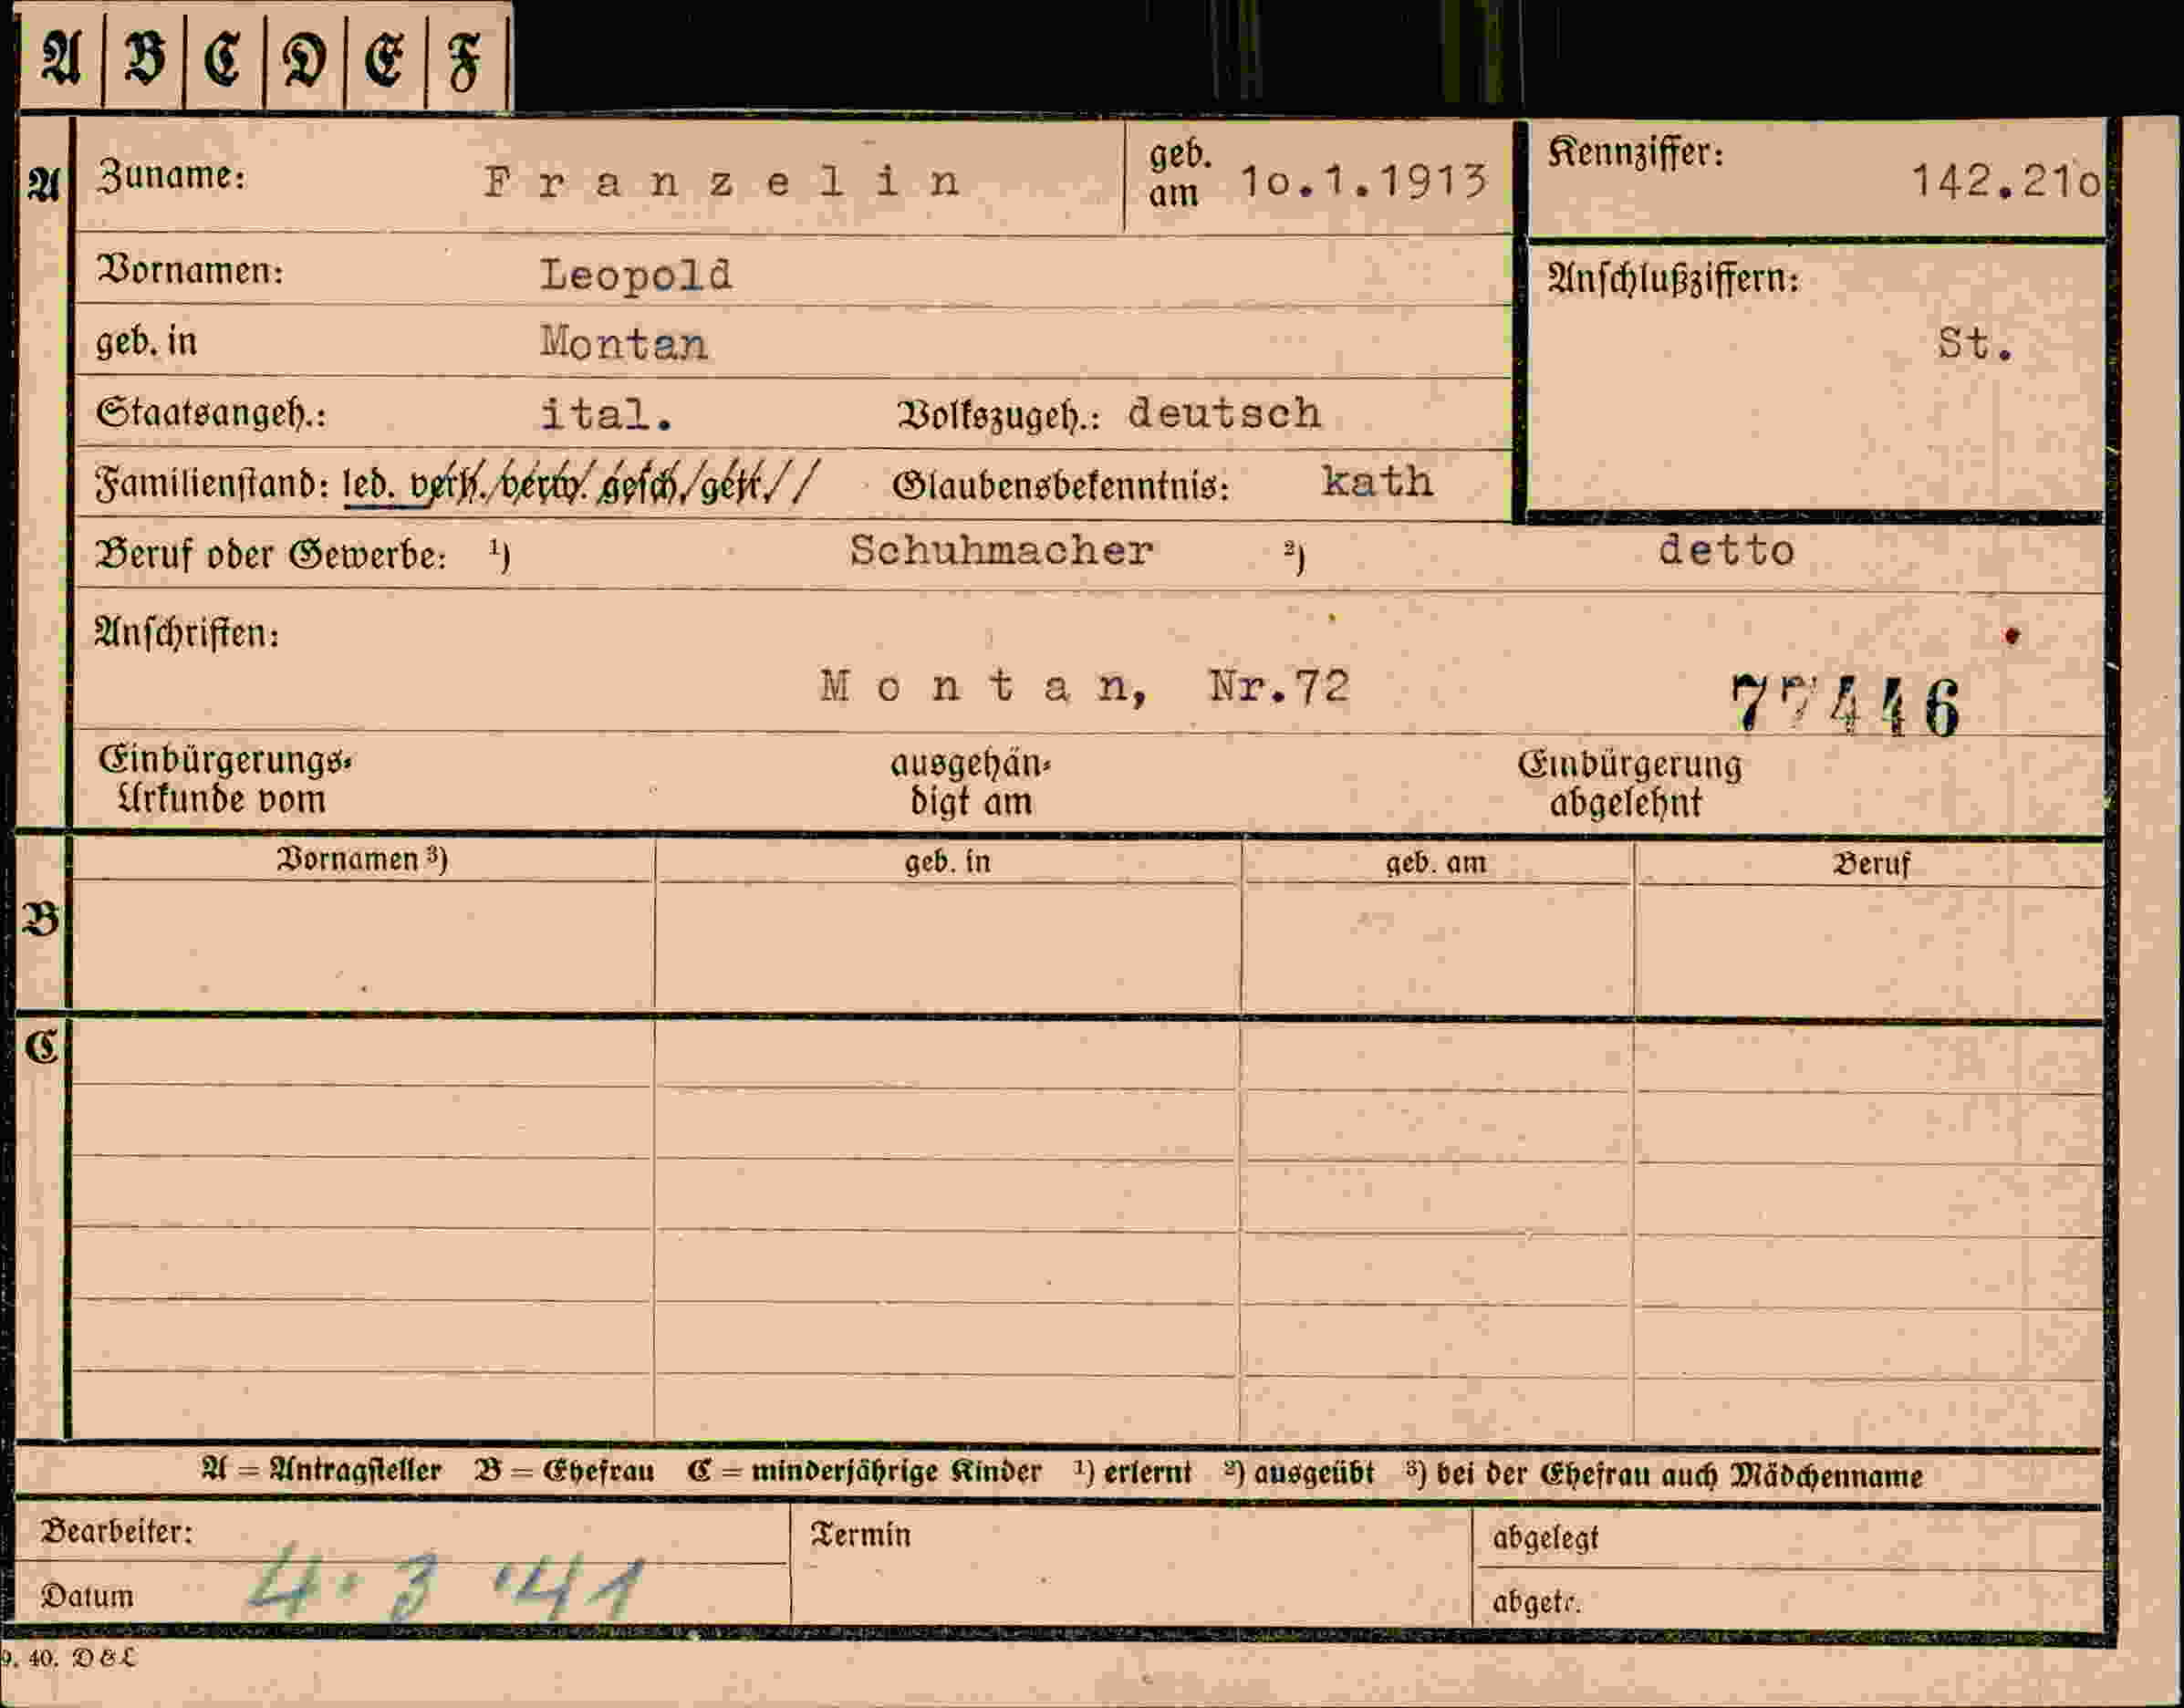 A B C D E F
A Zuname: Franzelin geb. am 1o.1.1913 Kennziffer: 142.21o
Vornamen: Leopold Anschlußziffern:
geb. in Montan St.
Staatsangeh.: ital. Volkszugeh.: deutsch
Familienstand: led. verh. verw. gesch. getr. Glaubensbekenntnis: kath
Beruf oder Gewerbe: ¹) Schuhmacher ²) detto
Anschriften:
Montan, Nr.72 77446
Einbürgerungs-
Urkunde vom
ausgehän-
digt am
Einbürgerung
abgelehnt
Vornamen ³) geb. in geb. am Beruf
B
C
A = Antragsteller B = Ehefrau C = minderjährige Kinder ¹) erlernt ²) ausgeübt ³) bei der Ehefrau auch Mädchenname
Bearbeiter: Termin abgelegt
Datum 4.3.'41 abgetr.
9. 40. D&L